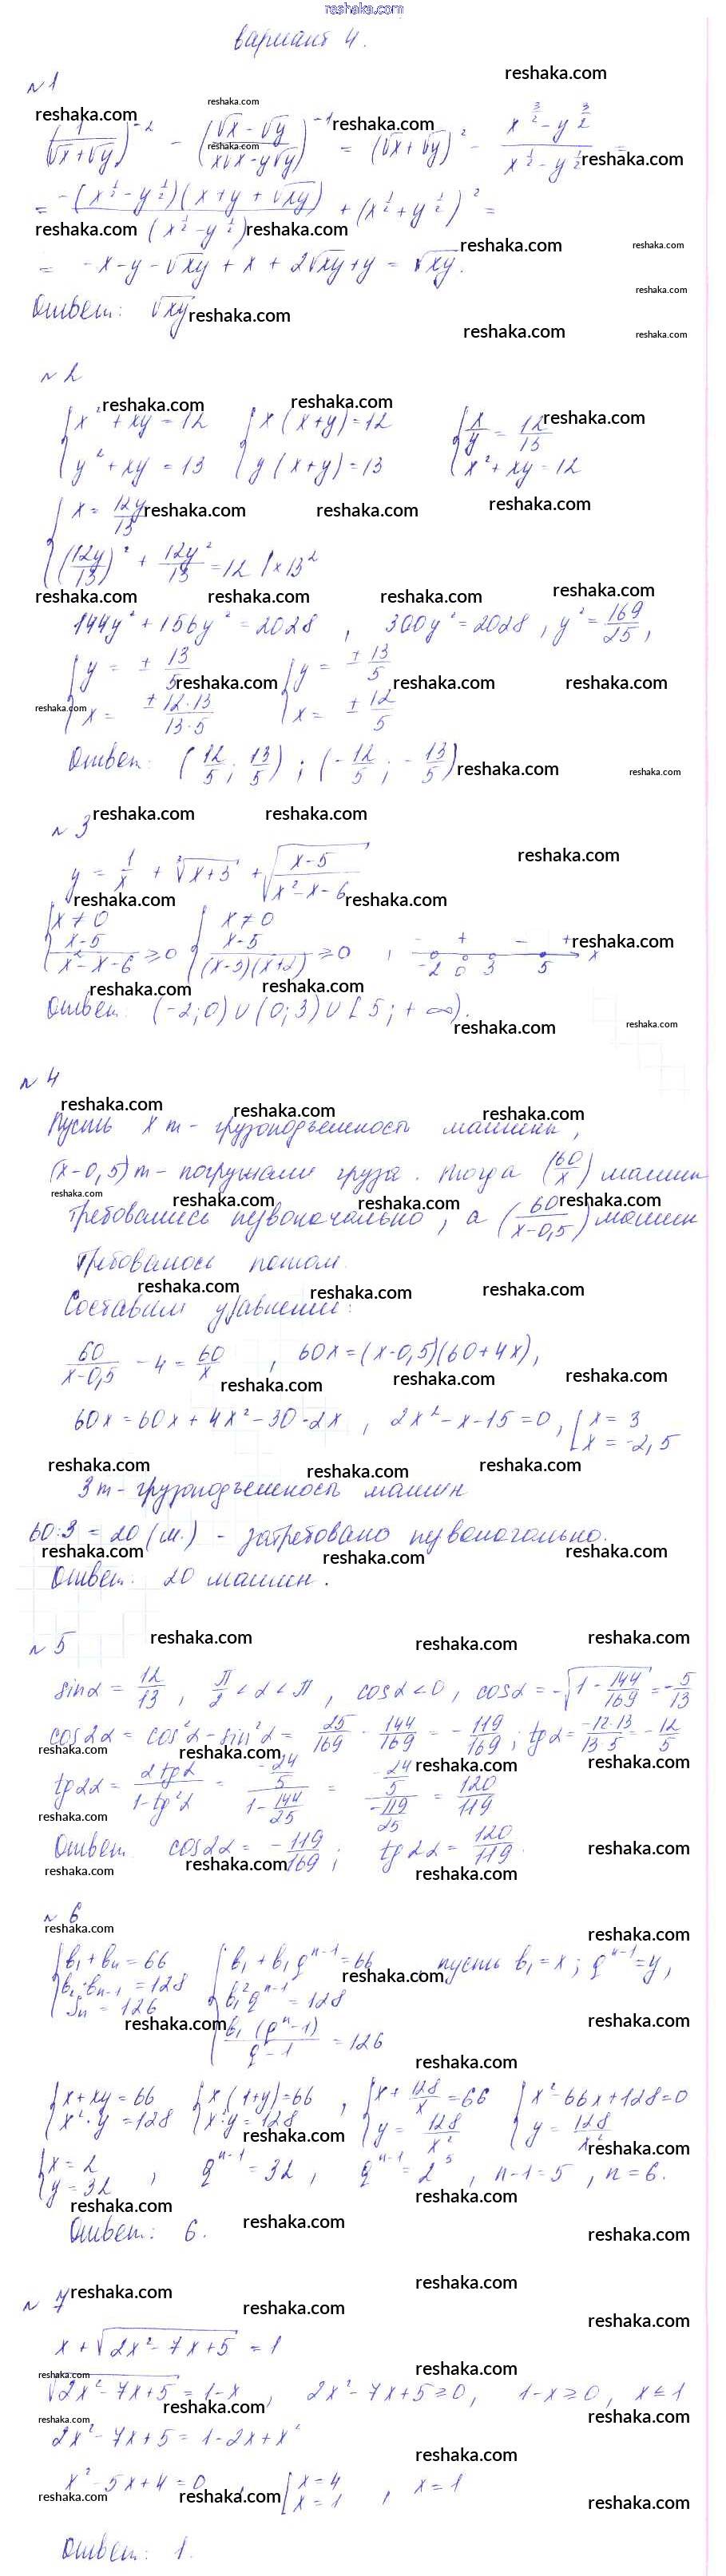 reshaka.com
вариант 4.
№1
(1/(√x+√y))^-2 - ((√x-√y)/(x√x-y√y))^-1 = (√x+√y)^2 - (x^(3/2)-y^(3/2))/(x^(1/2)-y^(1/2)) =
= -(x^(1/2)-y^(1/2))(x+y+√xy)/(x^(1/2)-y^(1/2)) + (x^(1/2)+y^(1/2))^2 =
= -x-y-√xy+x+2√xy+y = √xy.
Ответ: √xy
№2
{x²+xy=12 {x(x+y)=12 {x/y=12/13
{y²+xy=13 {y(x+y)=13 {x²+xy=12
{x=12y/13
{(12y/13)²+12y²/13=12 |×13²
144y²+156y²=2028, 300y²=2028, y²=169/25,
{y=±13/5 {y=±13/5
{x=±12·13/13·5 {x=±12/5
Ответ: (12/5; 13/5); (-12/5; -13/5)
№3
y=1/x+∛x+3+√((x-5)/(x²-x-6))
{x≠0 {x≠0
{(x-5)/(x²-x-6)≥0 {(x-5)/((x-3)(x+2))≥0, + - + x
-2 0 3 5
Ответ: (-2;0)∪(0;3)∪[5;+∞).
№4
Пусть x т - грузоподъемность машины,
(x-0,5) т - погружали груза. Тогда (60/x) машин
требовались первоначально, а (60/(x-0,5)) машин
требовалось потом.
Составим уравнение:
60/(x-0,5) - 4 = 60/x, 60x=(x-0,5)(60+4x),
60x=60x+4x²-30-2x, 2x²-x-15=0, [x=3
x=-2,5
3 т - грузоподъемность машин
60:3=20 (м.) - затребовано первоначально.
Ответ: 20 машин.
№5
sinα=12/13, π/2<α<π, cosα<0, cosα=-√(1-144/169)=-5/13
cos2α=cos²α-sin²α=25/169-144/169=-119/169; tgα=-12·13/13·5=-12/5
tg2α=2tgα/(1-tg²α)=(-24/5)/(1-144/25)=(-24/5)/(-119/25)=120/119
Ответ: cos2α=-119/169; tg2α=120/119.
№6
{b₁+bₙ=66 {b₁+b₁q^(n-1)=66, пусть b₁=x; q^(n-1)=y,
{b₂·bₙ₋₁=128 {b₁²q^(n-1)=128
{Sₙ=126 {b₁(q^n-1)/(q-1)=126
{x+xy=66 {x(1+y)=66, {x+128/x=66 {x²-66x+128=0
{x²·y=128 {x²y=128 {y=128/x² {y=128/x²
{x=2
{y=32, q^(n-1)=32, q^(n-1)=2^5, n-1=5, n=6.
Ответ: 6.
№7
x+√(2x²-7x+5)=1
√(2x²-7x+5)=1-x, 2x²-7x+5≥0, 1-x≥0, x≤1
2x²-7x+5=1-2x+x²
x²-5x+4=0, [x=4
x=1, x=1
Ответ: 1.